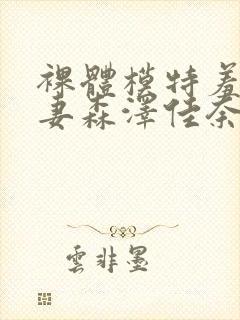 裸體模特羞
妻森澤佳奈
雲非墨